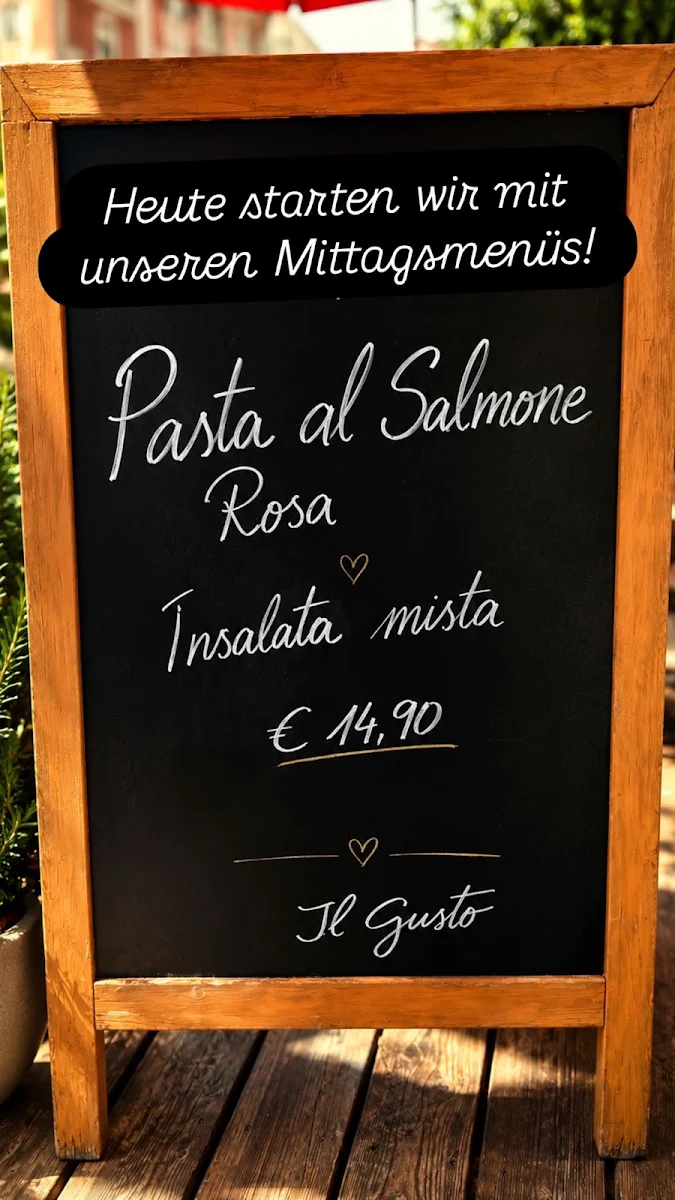 Heute starten wir mit
unseren Mittagsmenüs!
Pasta al Salmone
Rosa
Insalata mista
€ 14,90
Il Gusto